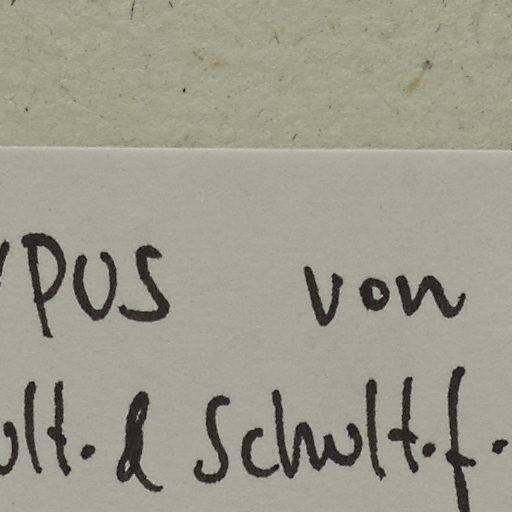 YPUS von
ult. & Schult.f.